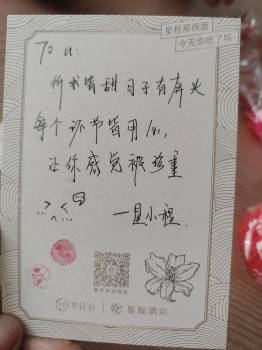 星程那碗面
今天你吃了吗~
To u:
所求皆甜 日子有奔头
每个环节皆用心,
让你感觉被珍重
—星小程.
华住会
星程酒店